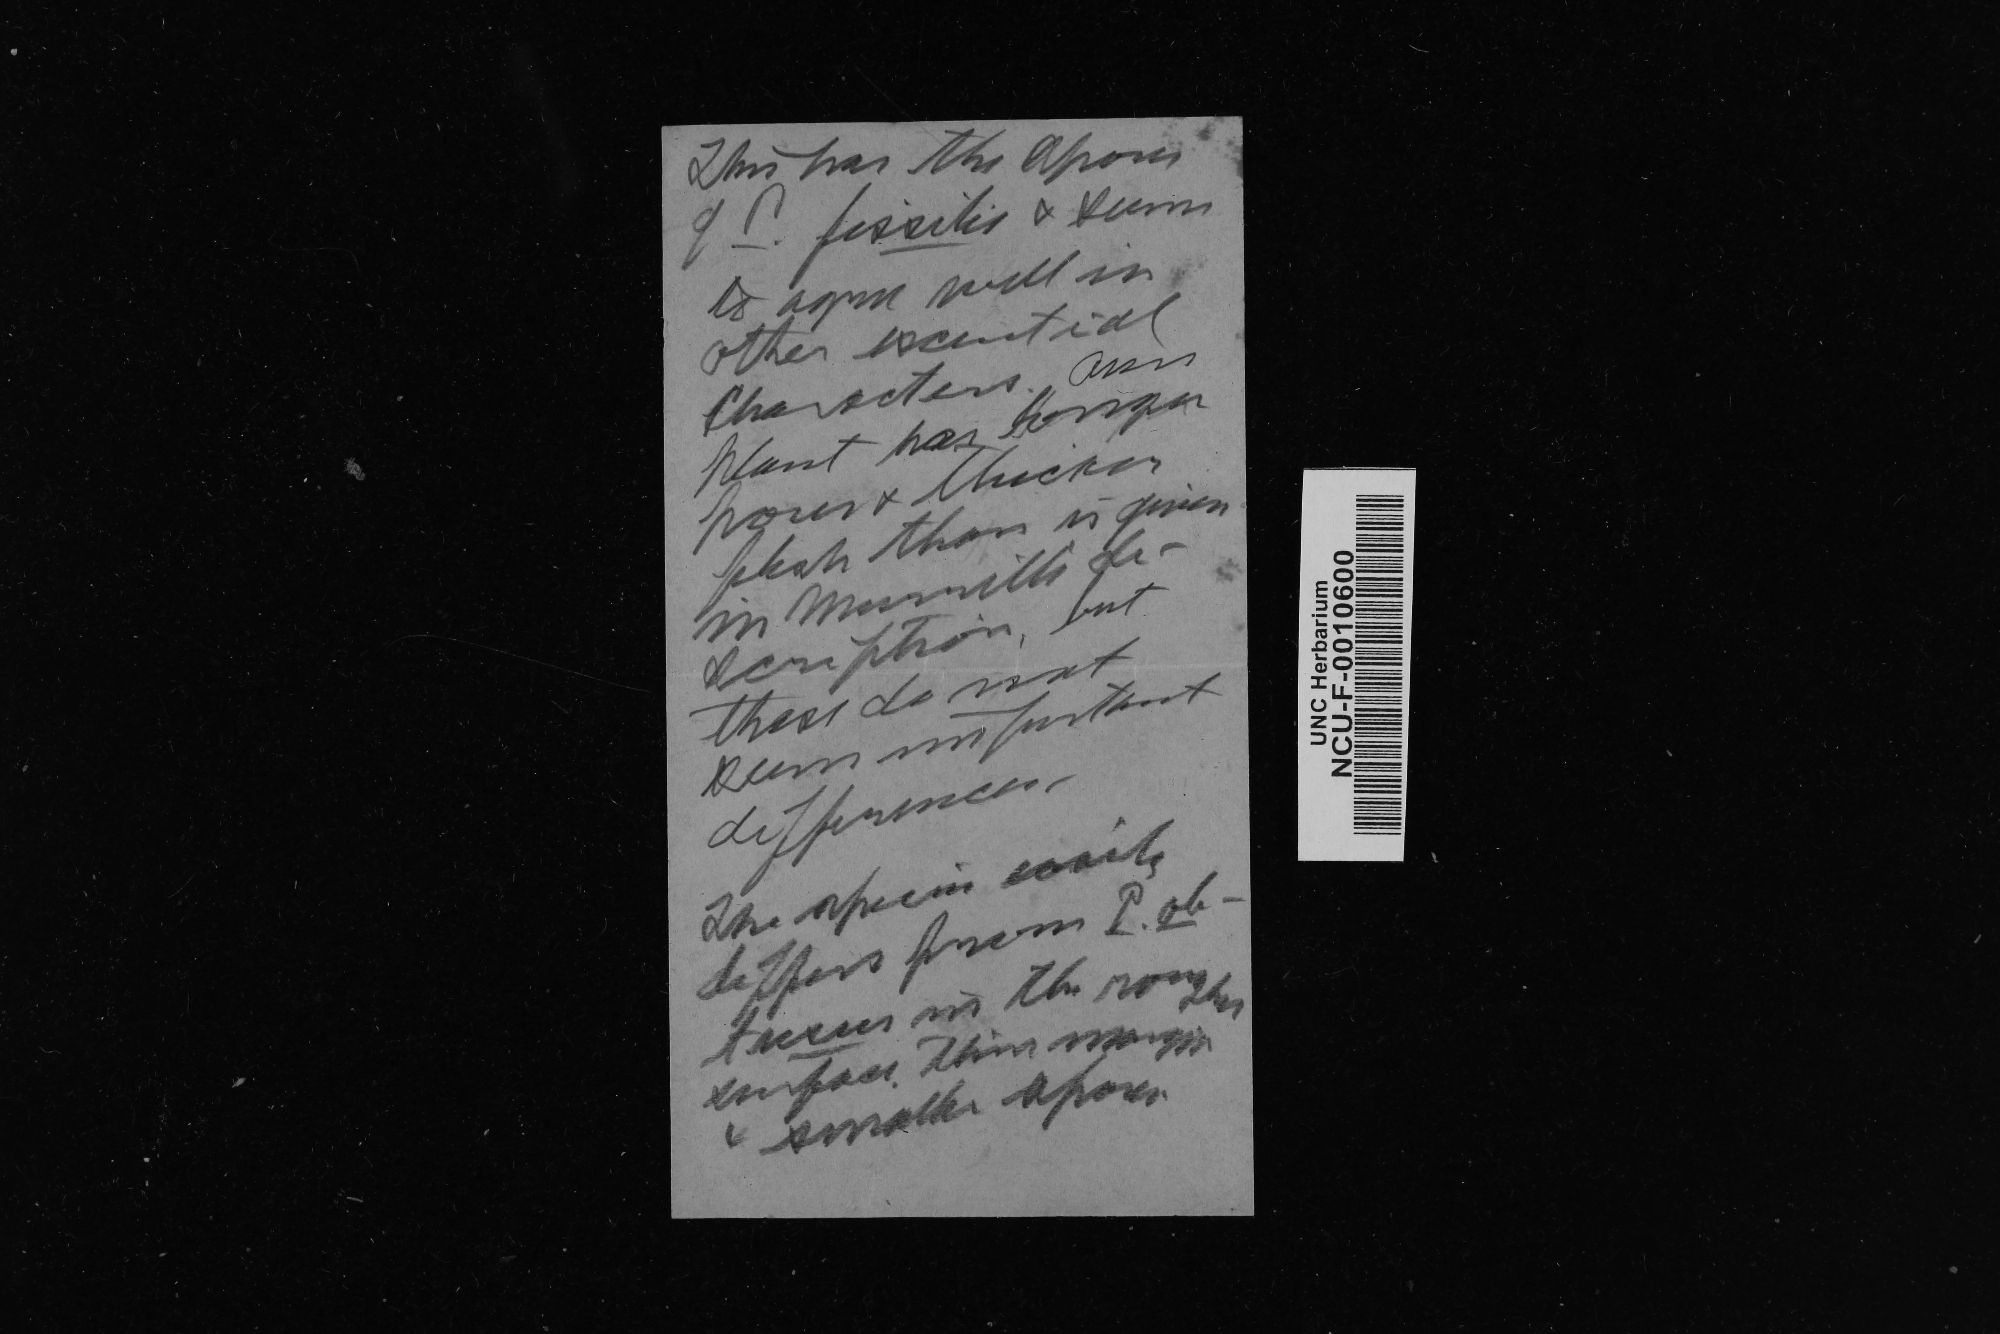 This has the spores
of P. fissilis & seems
to agree well in
other essential
characters. Our
plant has longer
pores & thicker
flesh than is given
in Murrill's de-
scription, but
these do not
seem important
differences.
The species easily
differs from P. ob-
tusus in the rougher
surface, thin margin
& smaller spores.
UNC Herbarium
NCU-F-0010600